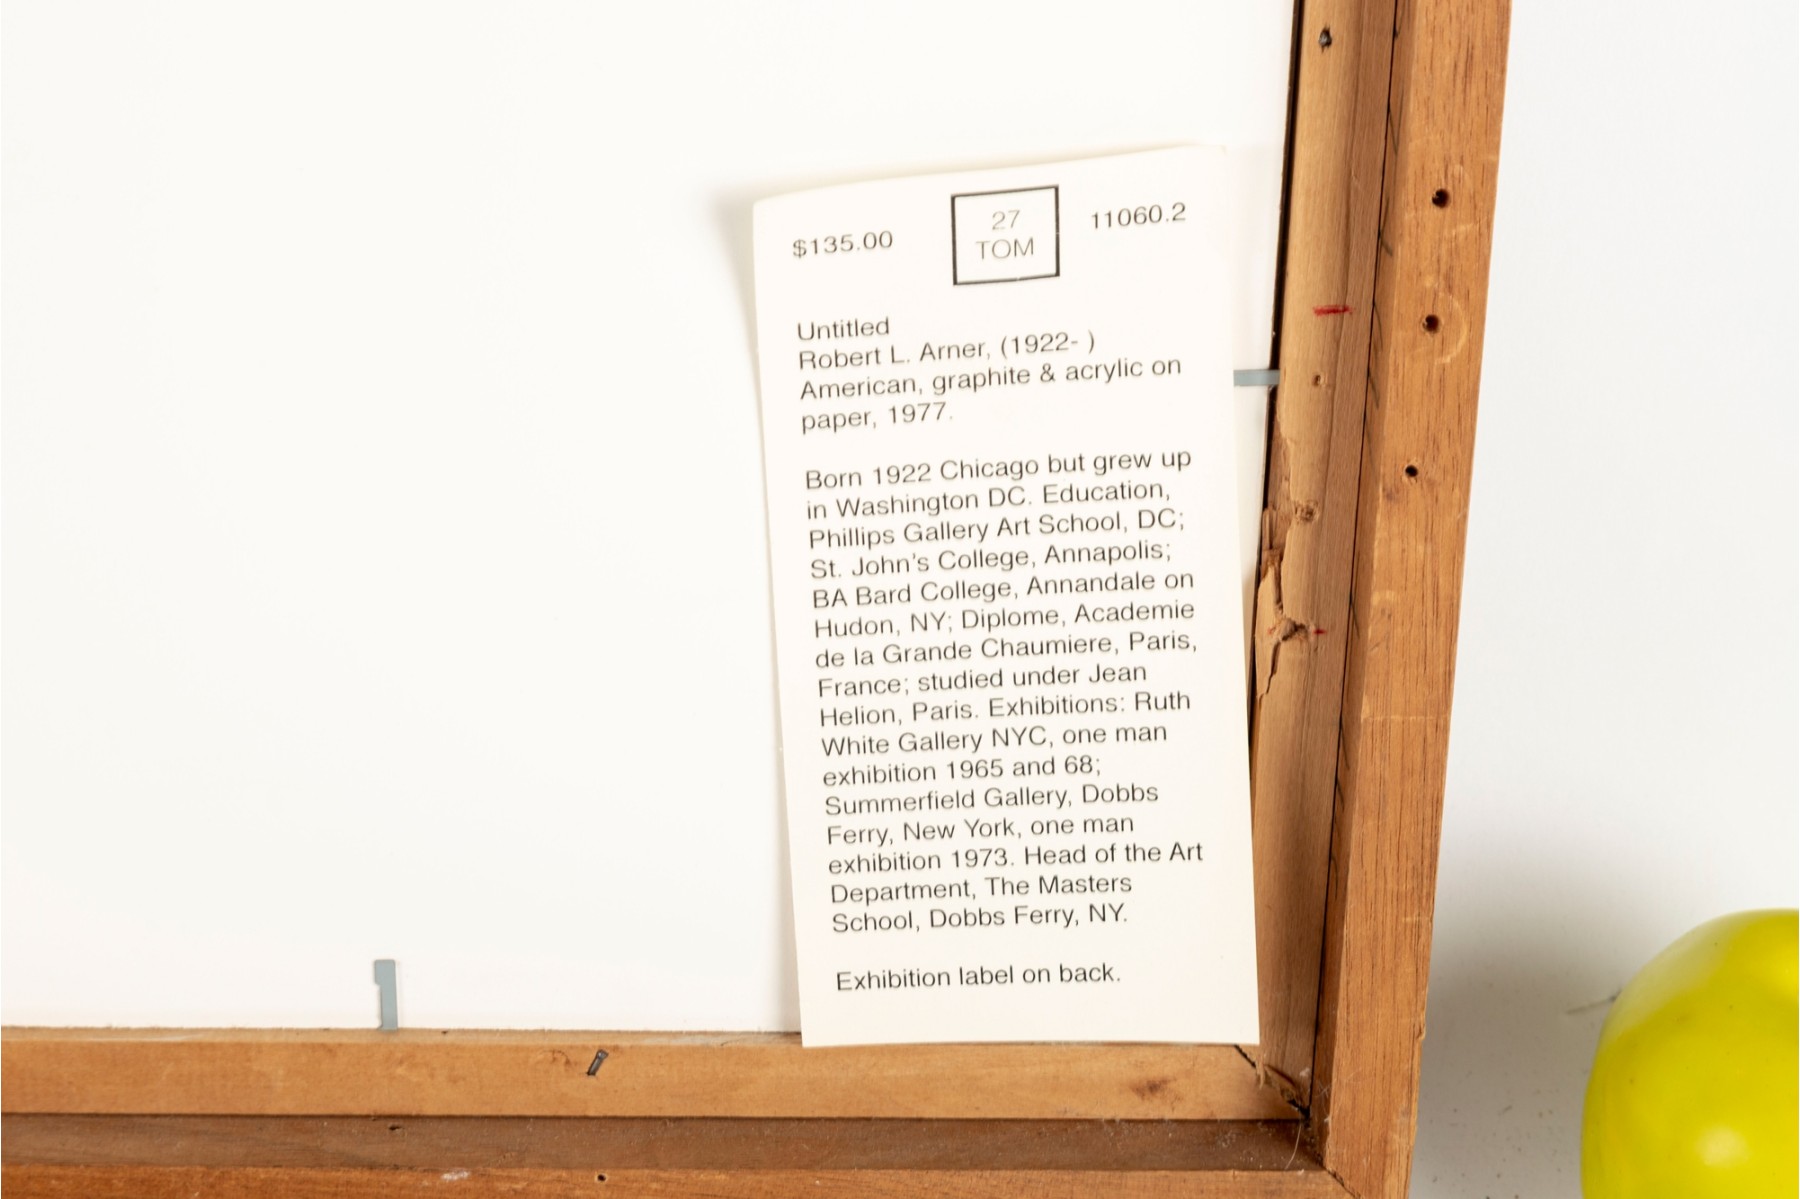 $135.00 27 11060.2
TOM
Untitled
Robert L. Arner, (1922- )
American, graphite & acrylic on
paper, 1977.
Born 1922 Chicago but grew up
in Washington DC. Education,
Phillips Gallery Art School, DC;
St. John's College, Annapolis;
BA Bard College, Annandale on
Hudon, NY; Diplome, Academie
de la Grande Chaumiere, Paris,
France; studied under Jean
Helion, Paris. Exhibitions: Ruth
White Gallery NYC, one man
exhibition 1965 and 68;
Summerfield Gallery, Dobbs
Ferry, New York, one man
exhibition 1973. Head of the Art
Department, The Masters
School, Dobbs Ferry, NY.
Exhibition label on back.